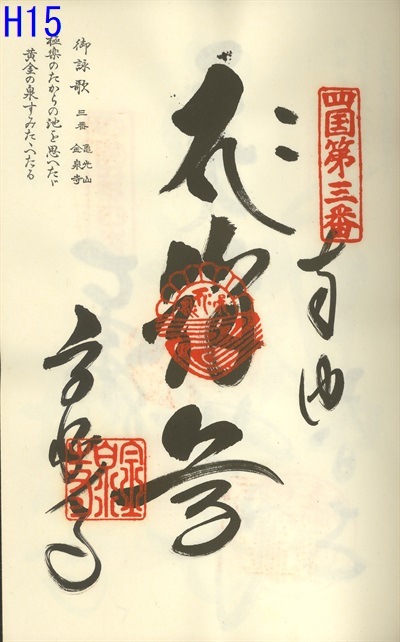 H15
四国第三番
奉納
本釈迦尊
金泉寺
御詠歌 三番 亀光山 金泉寺
極楽のたからの池を思へたゞ
黄金の泉すみたゝへたる